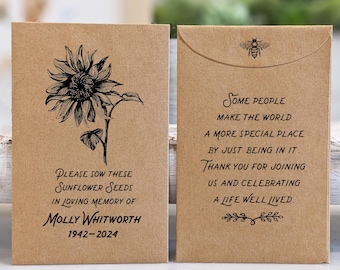 Please sow these
Sunflower Seeds
in loving memory of
Molly Whitworth
1942–2024
Some people
make the world
a more special place
by just being in it.
Thank you for joining
us and celebrating
a life well lived.